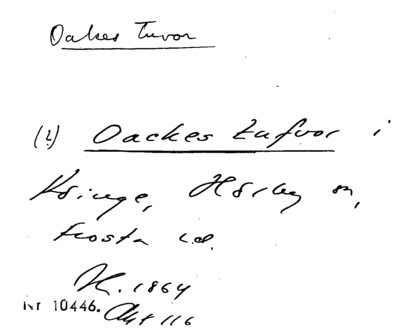 Oakes Tuvor
(2) Oackes tufvor i
Kringe, Hörby sn,
Frosta hd.
K. 1864
Nr 10446. Akt 116